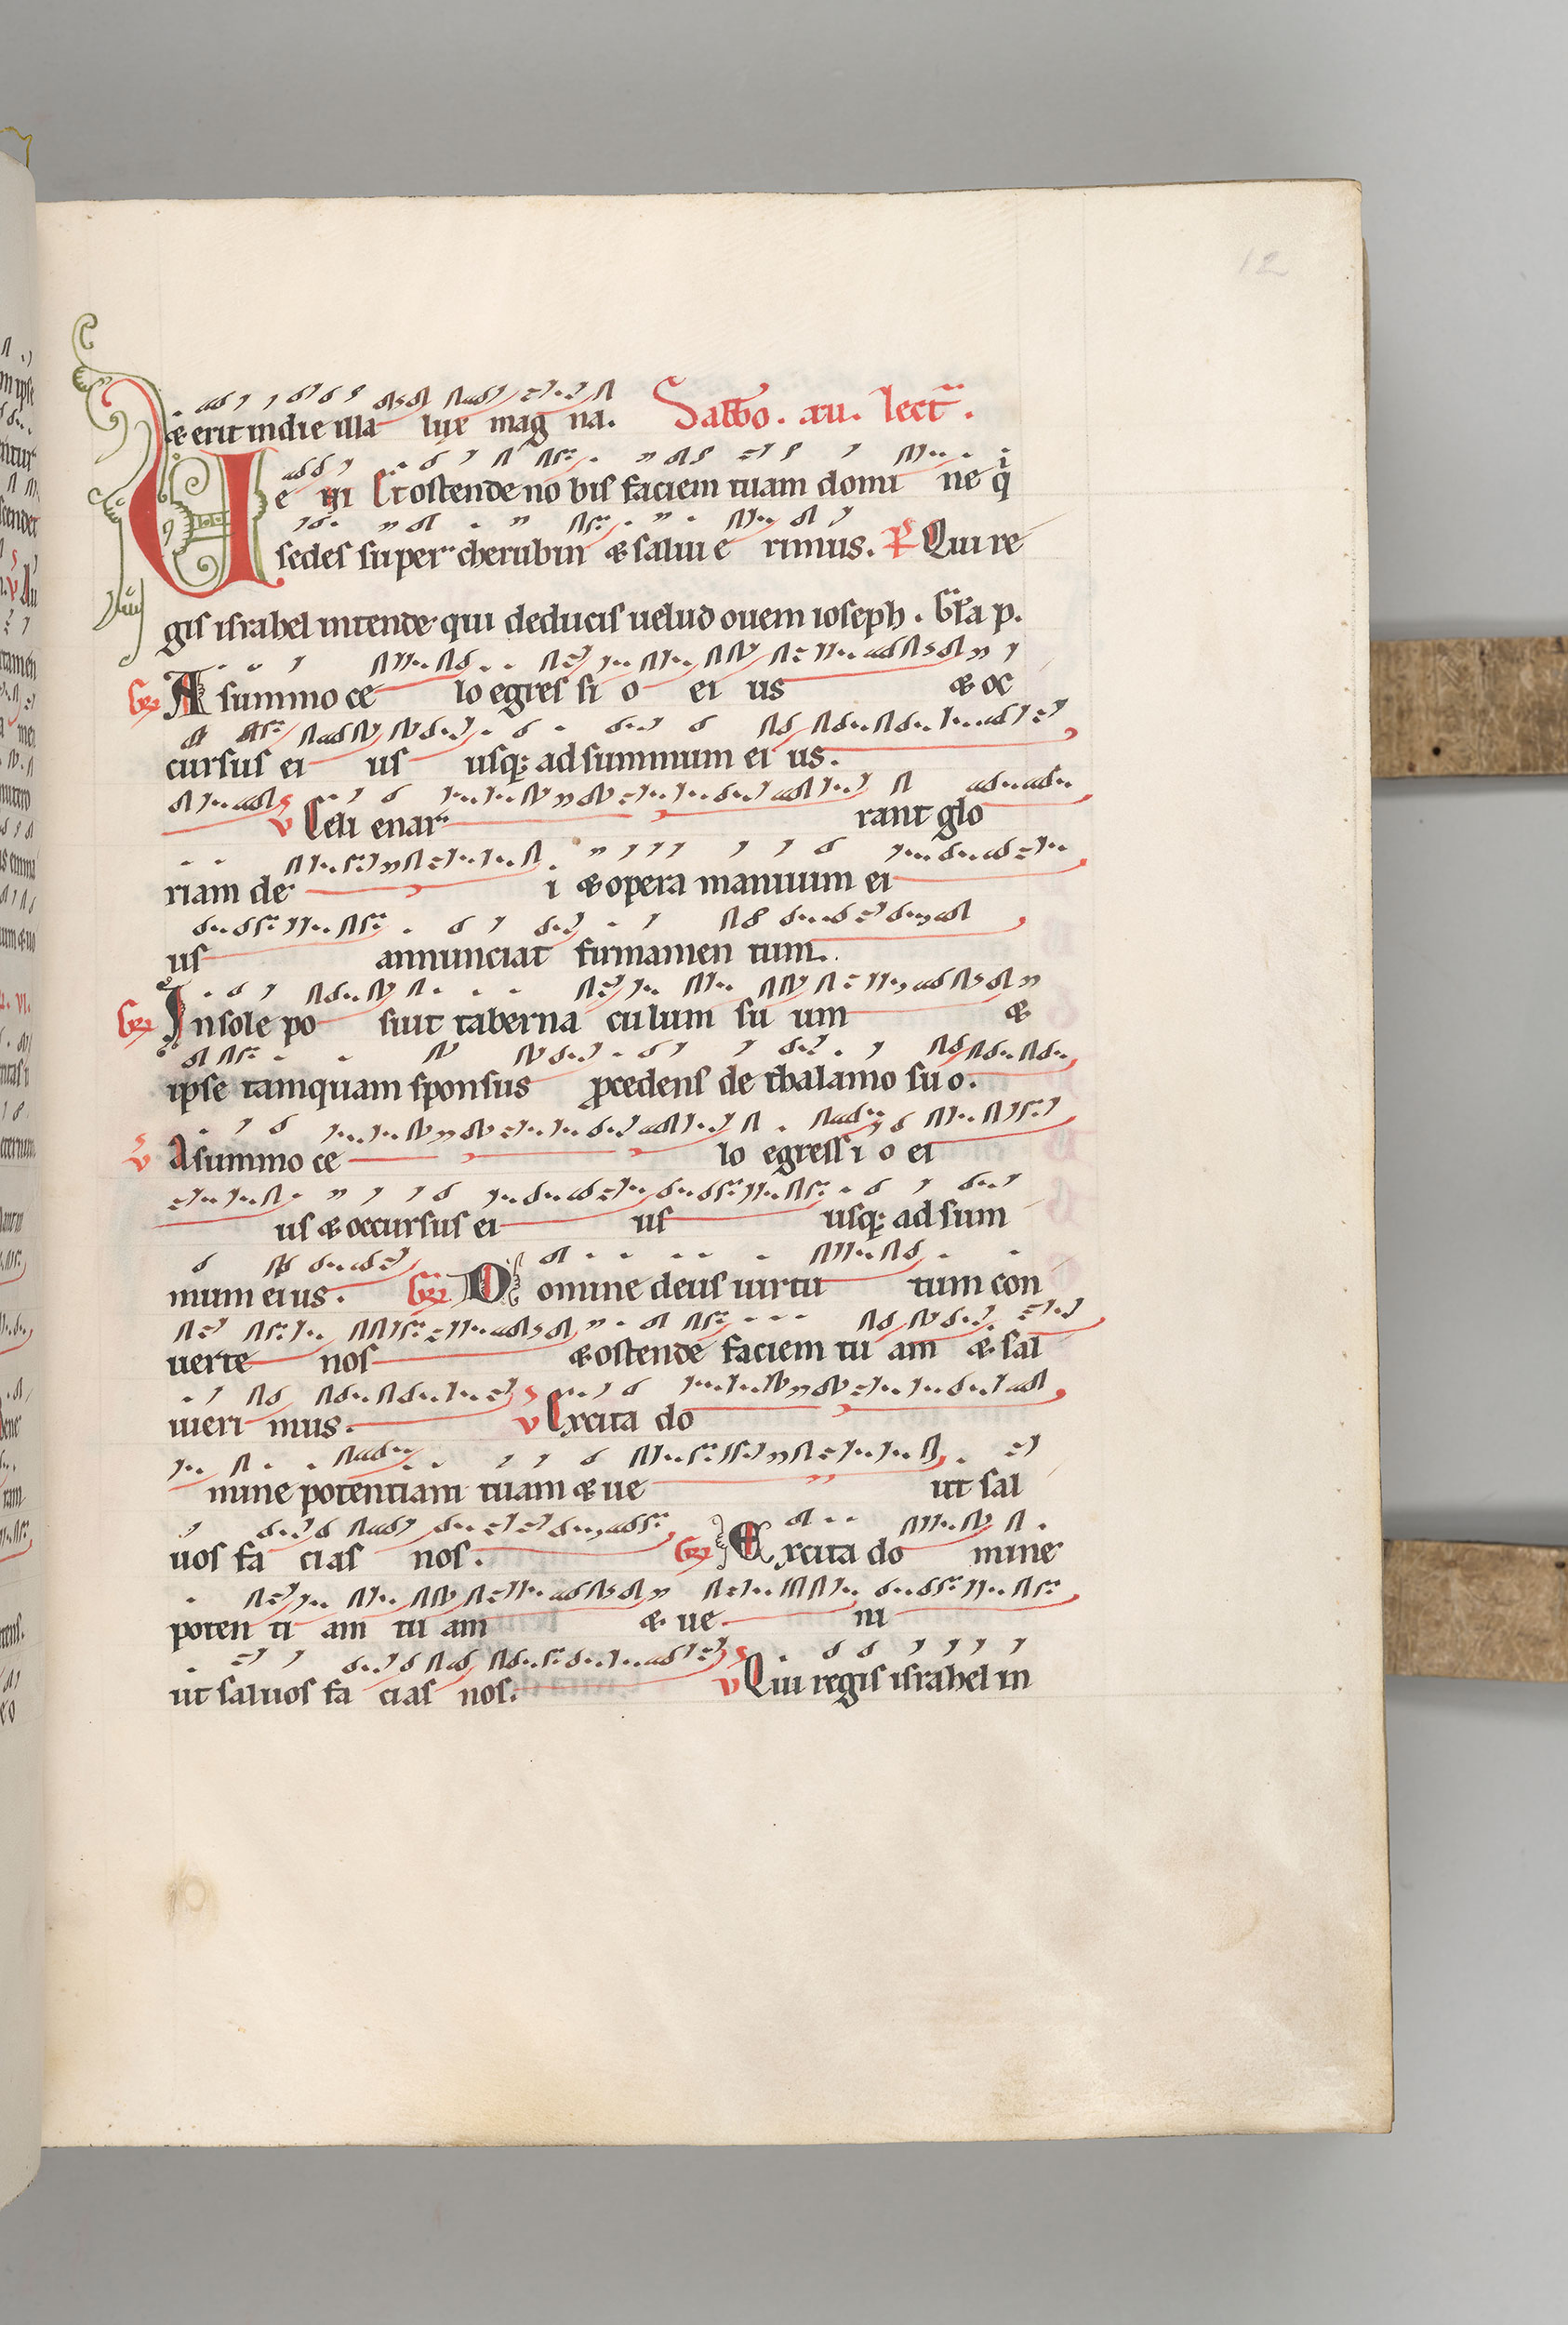 12
& erit in die illa lux mag na. Sabbo. xii. lect.
Ve ni Et ostende no bis faciem tuam domi ne q
sedes super cherubin & salui e rimus. Ps Qui re
gis israhel intende qui deducis uelud ouem ioseph. Gra p.
Gr A summo ce lo egres si o ei us & oc
cursus ei us usq; ad summum ei us.
V Celi enar rant glo
riam de i & opera manuum ei
us annunciat firmamen tum.
Gr In sole po suit taberna culum su um &
ipse tamquam sponsus pcedens de thalamo su o.
V A summo ce lo egressi o ei
us & occursus ei us usq; ad sum
mum ei us. Gr Domine deus uirtu tum con
uerte nos & ostende faciem tu am & sal
ui eri mus. V Excita do
mine potentiam tuam & ue ut sal
uos fa cias nos. Gr Excita do mine
poten ti am tu am & ue ni
ut saluos fa cias nos. V Qui regis israhel in